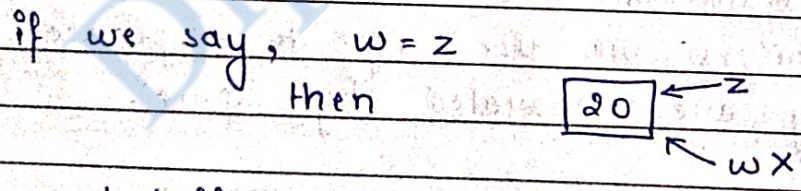 if we say, w = z
then 20 z
w x